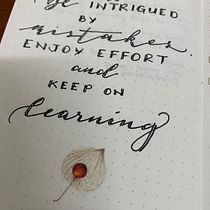 Be INTRIGUED
BY
mistakes.
ENJOY EFFORT
and
KEEP ON
learning